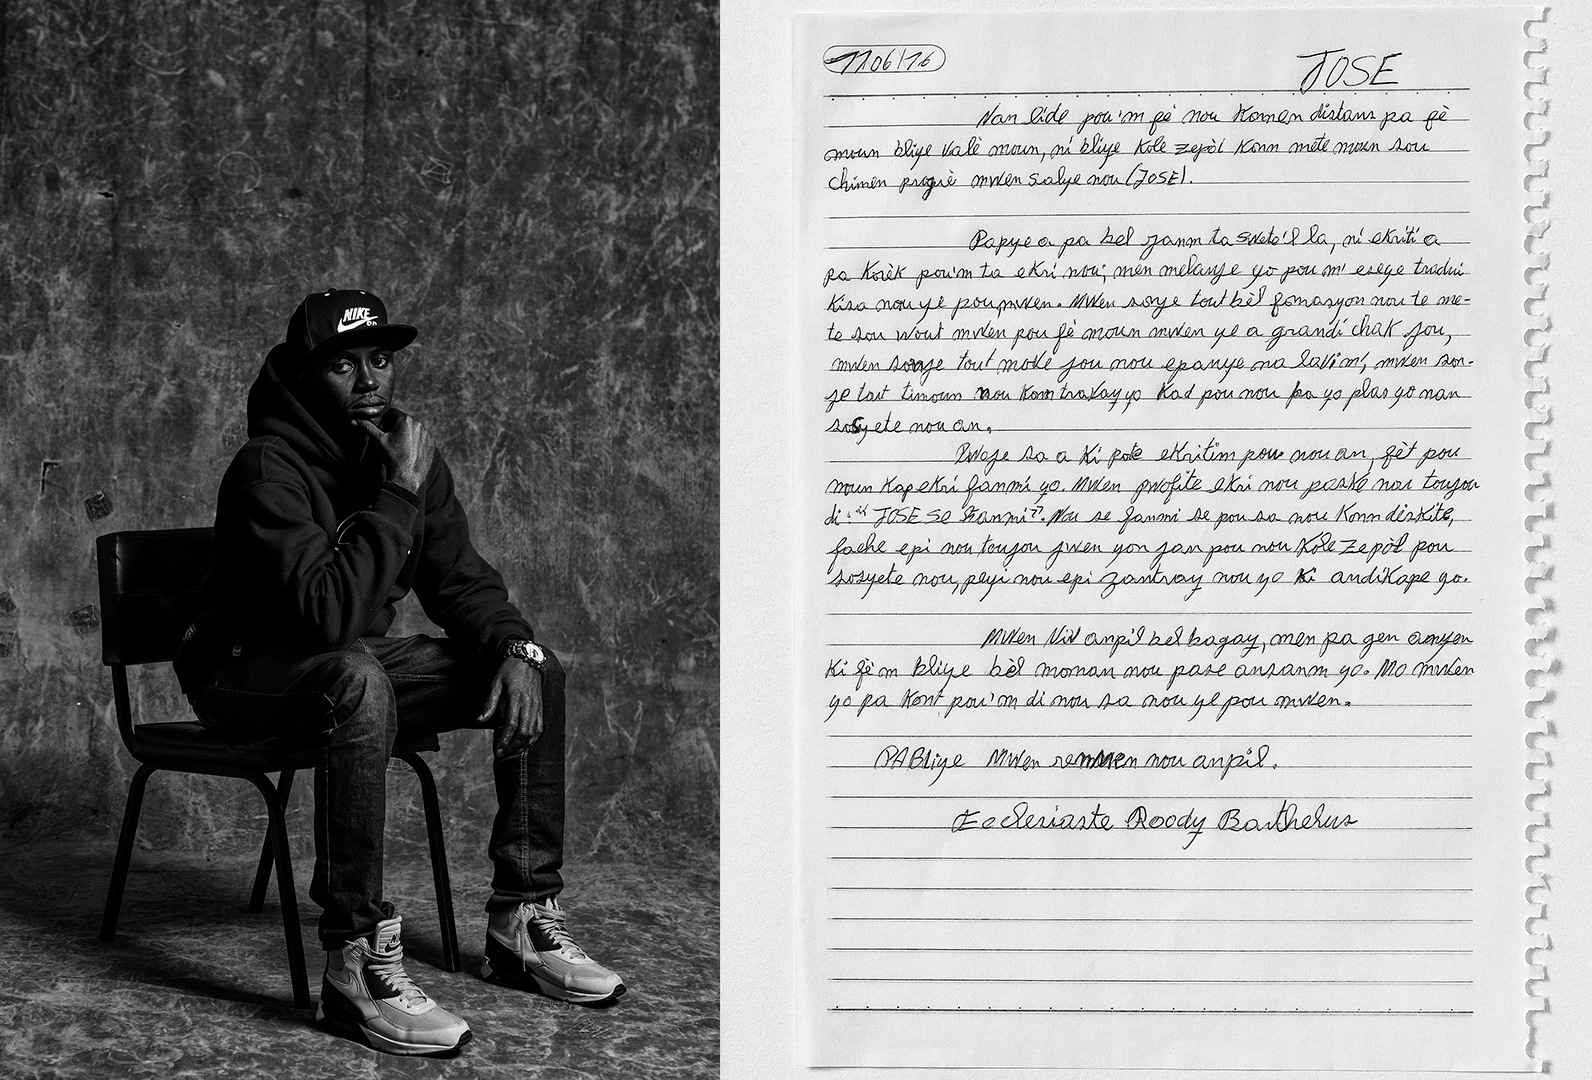 NIKE
11/06/16
JOSE
Nan lide pou'm fè nou Konnen distans pa fè
moun bliye valè moun, ni bliye Kole zepòl Konn mete moun sou
chimen progrè mwen salye nou (JOSE).
Papye a pa bel janm ta swete'l la, ni ekriti a
pa Korèk pou'm ta ekri nou; men melanje yo pou m' eseye tradui
Kisa nou ye pou mwen. Mwen sonje tout bèl fomasyon nou te me-
te sou wout mwen pou fè moun mwen ye a grandi chak jou,
mwen sonje tout mode jou nou epanye na lavi m', mwen son-
je tout timoun nou Konn travay yo Kad pou nou ba yo plas yo nan
sosyete nou an.
Pwoje sa a Ki pote ekritim pou nou an, fèt pou
moun Kap ekri fanmi yo. Mwen pwofite ekri nou paske nou toujou
di: "JOSE se Fanmi". Nou se fanmi se pou sa nou Konn diskite,
fache epi nou toujou jwen yon jan pou nou Kole zepòl pou
sosyete nou, peyi nou epi zantray nou yo Ki andikape yo.
Mwen viv anpil bel bagay, men pa gen anyen
Ki fè'm bliye bèl moman nou pase ansanm yo. Mo mwen
yo pa Kont pou'm di nou sa nou ye pou mwen.
PABliye Mwen renmen nou anpil.
Ecclesiaste Roody Barthelus